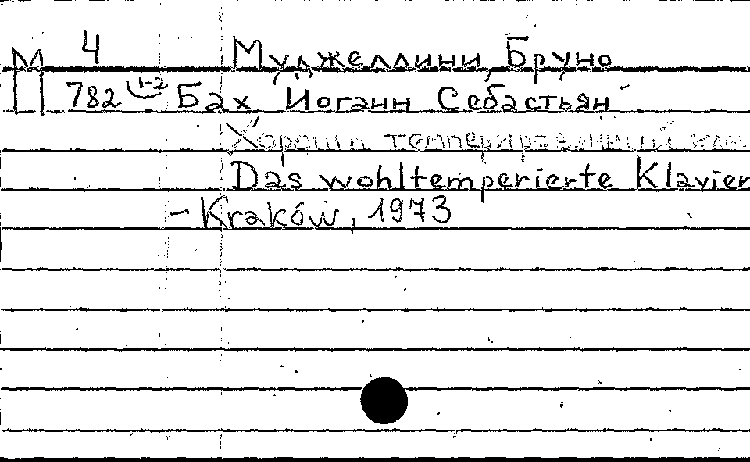 М 4 Муджеллини, Бруно
П 782 1-2 Бах Иоганн Себастьян
Хорошо темперированный
Das wohltemperierte Klavier
- Kraków, 1973